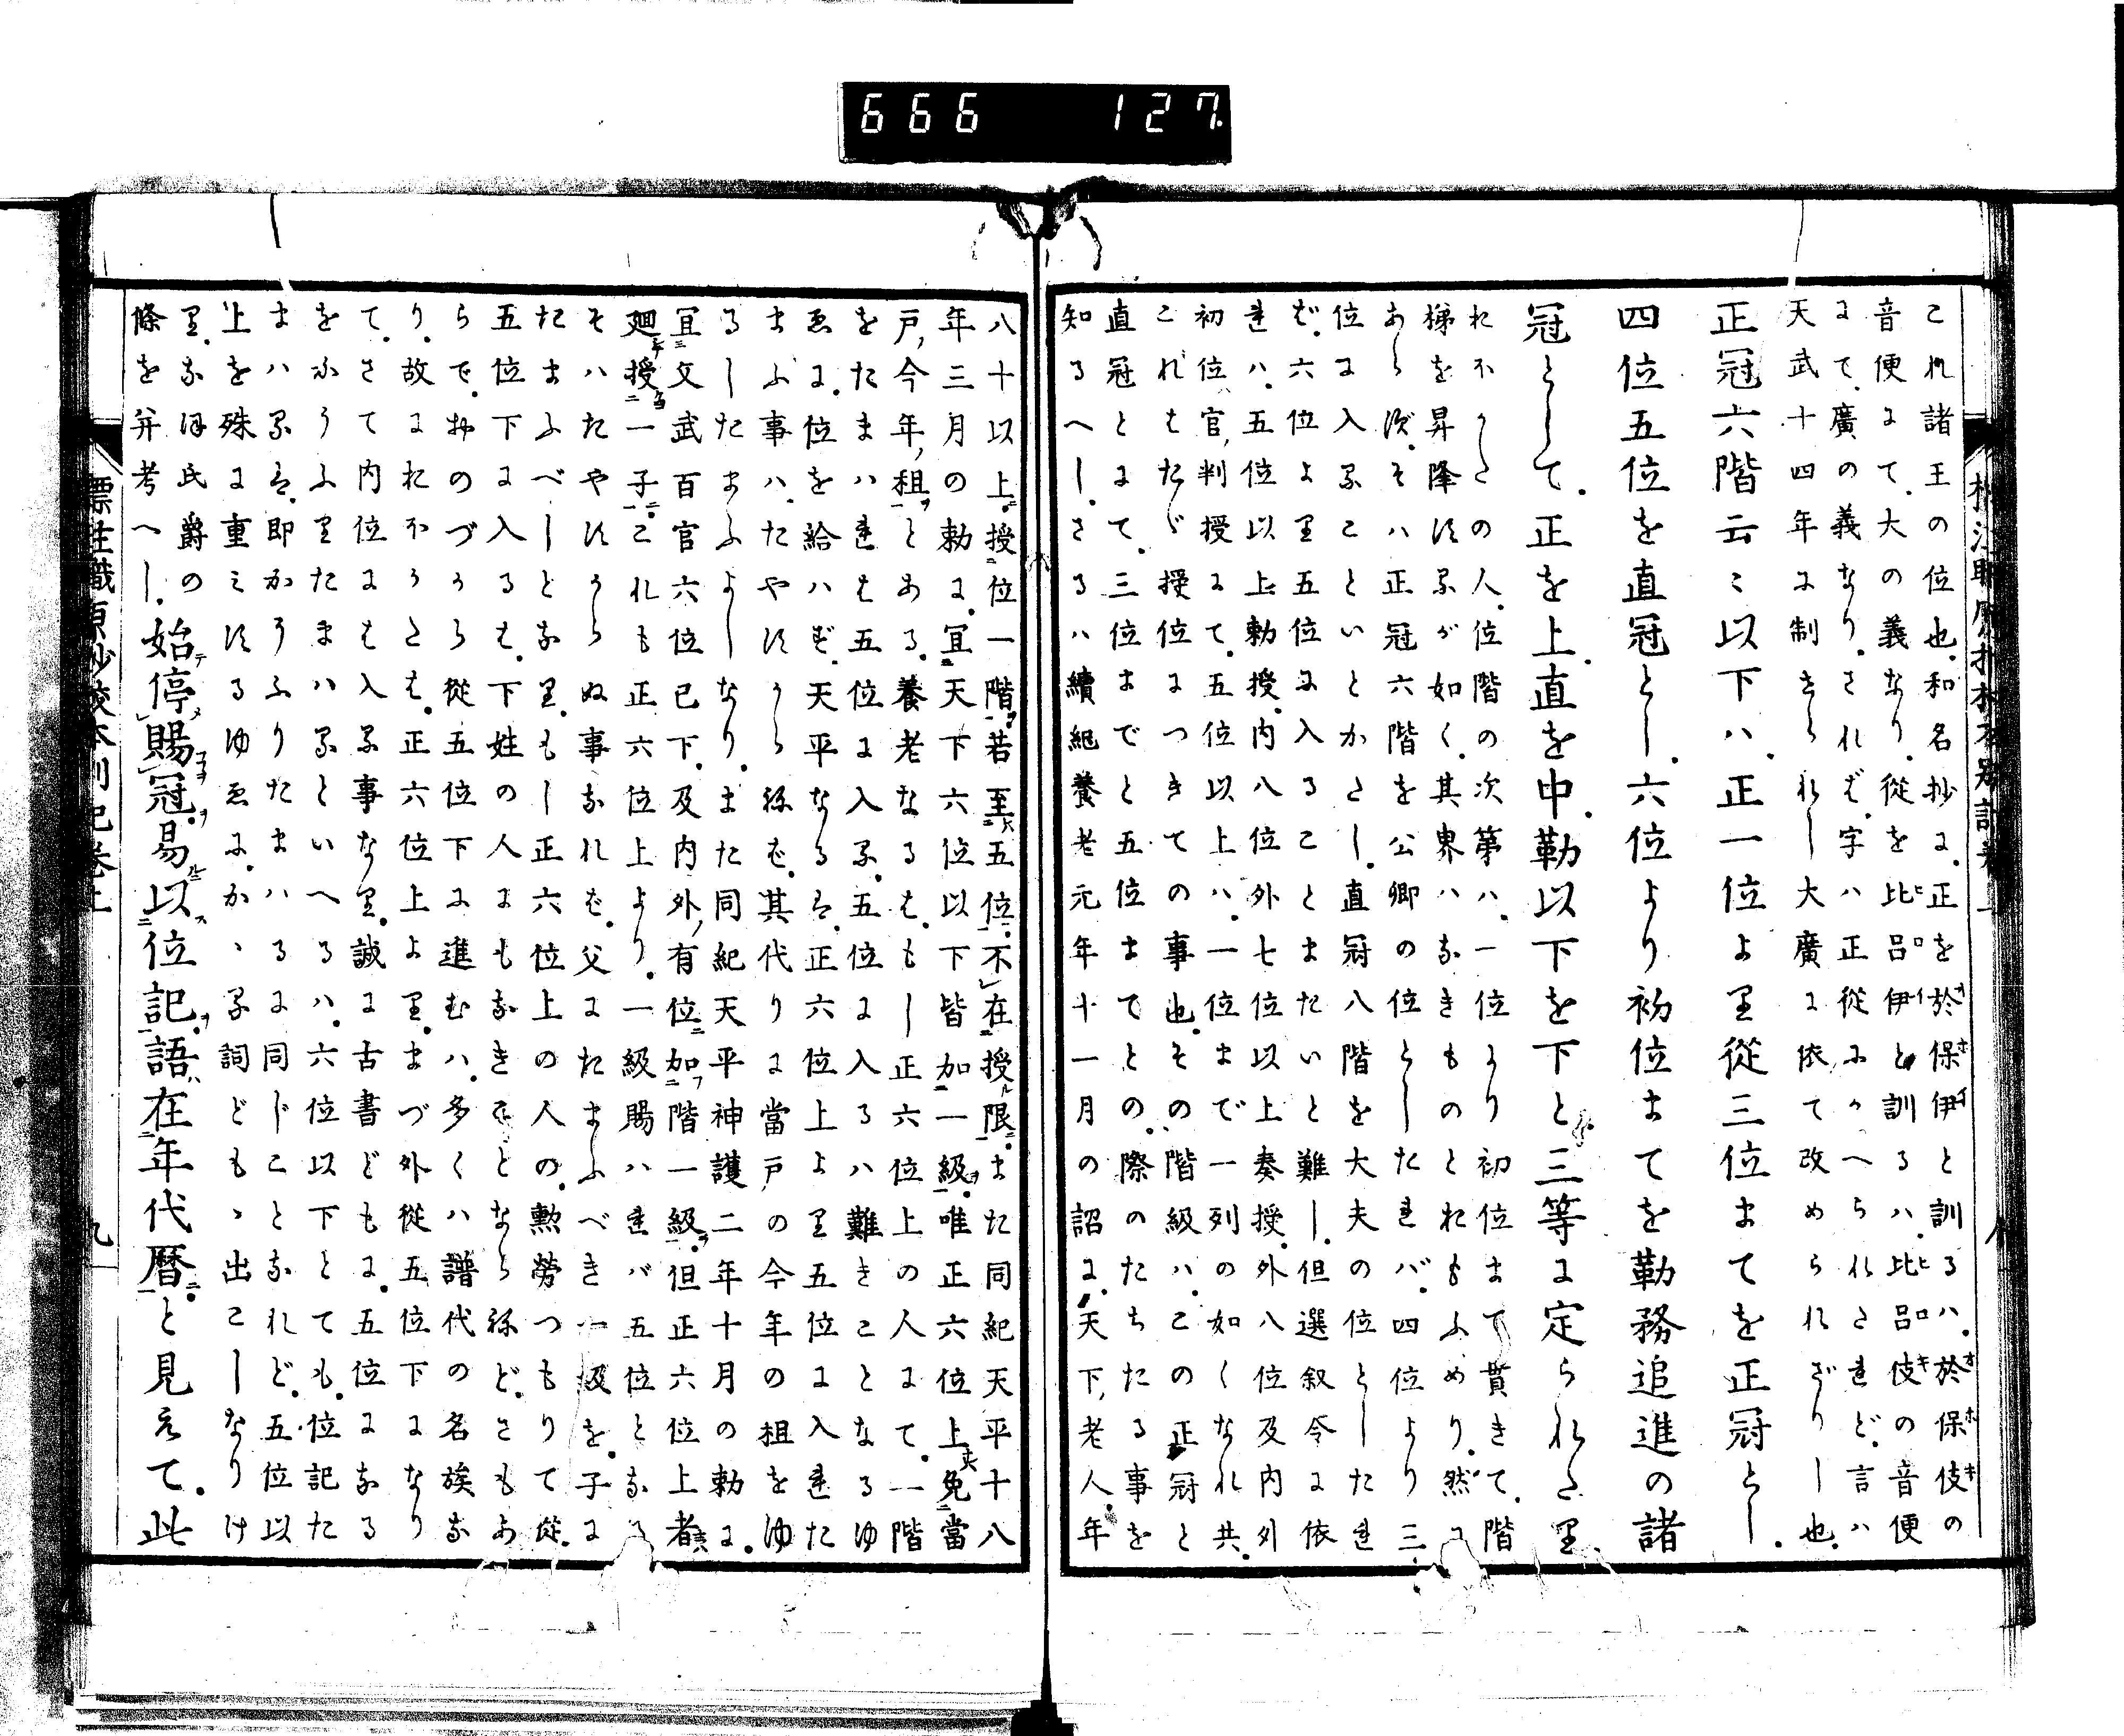 666 127.
これ諸王の位也、和名抄に、正を於保伊と訓るハ、於保伎の
音便にて、大の義なり、從を比呂伊と訓るハ、比呂伎の音便
にて、廣の義なり、されど、字ハ正從にかへられされど、言ハ
天武十四年に制られし大廣に依て改められざりし也、
正冠六階云々以下ハ、正一位より從三位まてを正冠とし、
四位五位を直冠とし、六位より初位まてを勤務追進の諸
冠として、正を上、直を中、勤以下を下と三等に定られたり、
れホくさの人、位階の次第ハ、一位より初位まで貫きて、階
梯を昇降する事が如く、其界ハなきものとおもふめり、然に
あらず、そハ正冠六階を公卿の位としたれバ、四位より三
位に入ることいとかたし、直冠八階を大夫の位としたれ
ば、六位より五位に入ることまたいと難し、但選叙令に依
れハ、五位以上勅授、内八位外七位以上奏授、外八位及内外
初位、官判授にて、五位以上ハ、一位まで一列の如くなれ共、
これはたゞ授位につきての事也、その階級ハ、この正冠と
直冠とにて、三位までと五位まてとの、際のたちたる事を
知るへし、さるハ續紀養老元年十一月の詔に、天下、老人、年
八十以上、授位一階、若至五位、不在授限、また同紀天平十八
年三月の勅に、宜天下六位以下皆加一級、唯正六位上免當
戸、今年、租とある、養老なるは、もし正六位上の人にて、一階
をたまハれは五位に入る、五位に入るハ難きことなるゆ
ゑに、位を給ハず、天平なるは、正六位上より五位に入れた
まふ事ハ、たやすからねば、其代りに當戸の今年の租をゆ
るしたまふよしなり、また同紀天平神護二年十月の勅に、
宜文武百官六位已下、及内外、有位加階一級、但正六位上者、
廻授一子、これも正六位上より、一級賜ハれバ五位となる
そハたやすからぬ事なれば、父にたまふべき一級を、子に
たまふべしとなり、もし正六位上の人の、勲勞つもりて從
五位下に入るは、下姓の人にもなきことならねど、さもあ
らで、おのづから從五位下に進むハ、多くハ譜代の名族な
り、故におほかたは、正六位上より、まづ外從五位下になり
て、さて内位には入る事なり、誠に古書どもに、五位になる
をかうふりたまハるといへるハ、六位以下とても、位記た
まハるは、即かうふりたまハるに同じことなれど、五位以
上を殊に重みするゆゑに、かゝる詞どもゝ出こしなりけ
り、なほ氏爵の
條を并考へし、始停賜冠、易以位記、語在年代暦と見えて、此
標注職原抄校本別記卷上
九